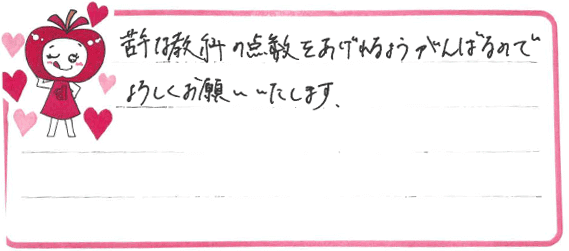 苦手な教科の点数をあげれるようがんばるので
よろしくお願いいたします。